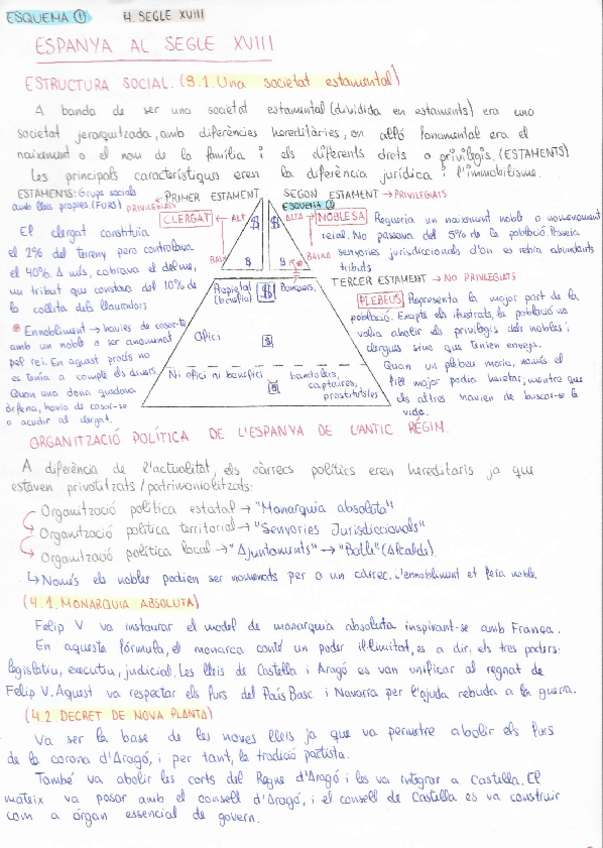 ESQUEMA ① 4. SEGLE XVIII
ESPANYA AL SEGLE XVIII
ESTRUCTURA SOCIAL. (3.1. Una societat estamental)
A banda de ser una societat estamental (dividida en estaments) era una
societat jerarquitzada, amb diferències hereditàries, on allò fonamental era el
naixement o el nom de la família i els diferents drets o privilegis. (ESTAMENTS)
Les principals característiques eren la diferència jurídica i l'immobilisme.
ESTAMENTS: Grups socials
amb lleis pròpies (FURS)
PRIVILEGIATS ← PRIMER ESTAMENT
CLERGAT ← ALT
BAIX
El clergat constituïa
el 2% del terreny pero controlava
el 40%. A més, cobrava el delme,
un tribut que constava del 10% de
la collita dels llauradors
Ennobliment → havies de casar-te
amb un noble o ser anomenat
pel rei. En aquest procés no
es tenia a compte els diners.
Quan una dona quedava
òrfena, havia de casar-se
o acudir al clergat.
SEGON ESTAMENT → PRIVILEGIATS
ESQUEMA ②
ALTA → NOBLESA
BAIXA
Requeria un naixement noble o anomenament
reial. No passava del 5% de la població. Posseïa
senyories jurisdiccionals d'on es rebia abundants
tributs
TERCER ESTAMENT → NO PRIVILEGIATS
PLEBEUS
Representa la major part de la
població. Excepte els ilustrats, la població no
volia abolir els privilegis dels nobles i
clergues sino que tenien enveja.
Quan un plebeu moria, només el
fill major podia heretar, mentre que
els altres havien de buscar-se la
vida.
Propietat (benefici) $ Banquers,
Ofici $
Ni ofici ni benefici bandolers,
captaires,
prostitutes/es
ORGANITZACIÓ POLÍTICA DE L'ESPANYA DE L'ANTIC RÈGIM.
A diferència de l'actualitat, els càrrecs polítics eren hereditaris ja que
estaven privatitzats / patrimonialitzats:
Organització política estatal → "Monarquia absoluta"
Organització política territorial → "Senyories Jurisdiccionals"
Organització política local → "Ajuntaments" → "Batlli" (Alcalds).
↳ Només els nobles podien ser nomenats per a un càrrec. L'ennobliment et feia noble.
(4.1. MONARQUIA ABSOLUTA)
Felip V va instaurar el model de monarquia absoluta inspirant-se amb França.
En aquesta fórmula, el monarca conté un poder il·limitat, es a dir, els tres poders:
legislatiu, executiu, judicial. Les lleis de Castella i Aragó es van unificar al regnat de
Felip V. Aquest va respectar els furs del País Basc i Navarra per l'ajuda rebuda a la guerra.
(4.2. DECRET DE NOVA PLANTA)
Va ser la base de les noves lleis ja que va permetre abolir els furs
de la corona d'Aragó, i per tant, la tradició pactista.
També va abolir les corts del Regne d'Aragó i les va integrar a Castella. El
mateix va pasar amb el consell d'Aragó, i el consell de Castella es va construir
com a òrgan essencial de govern.